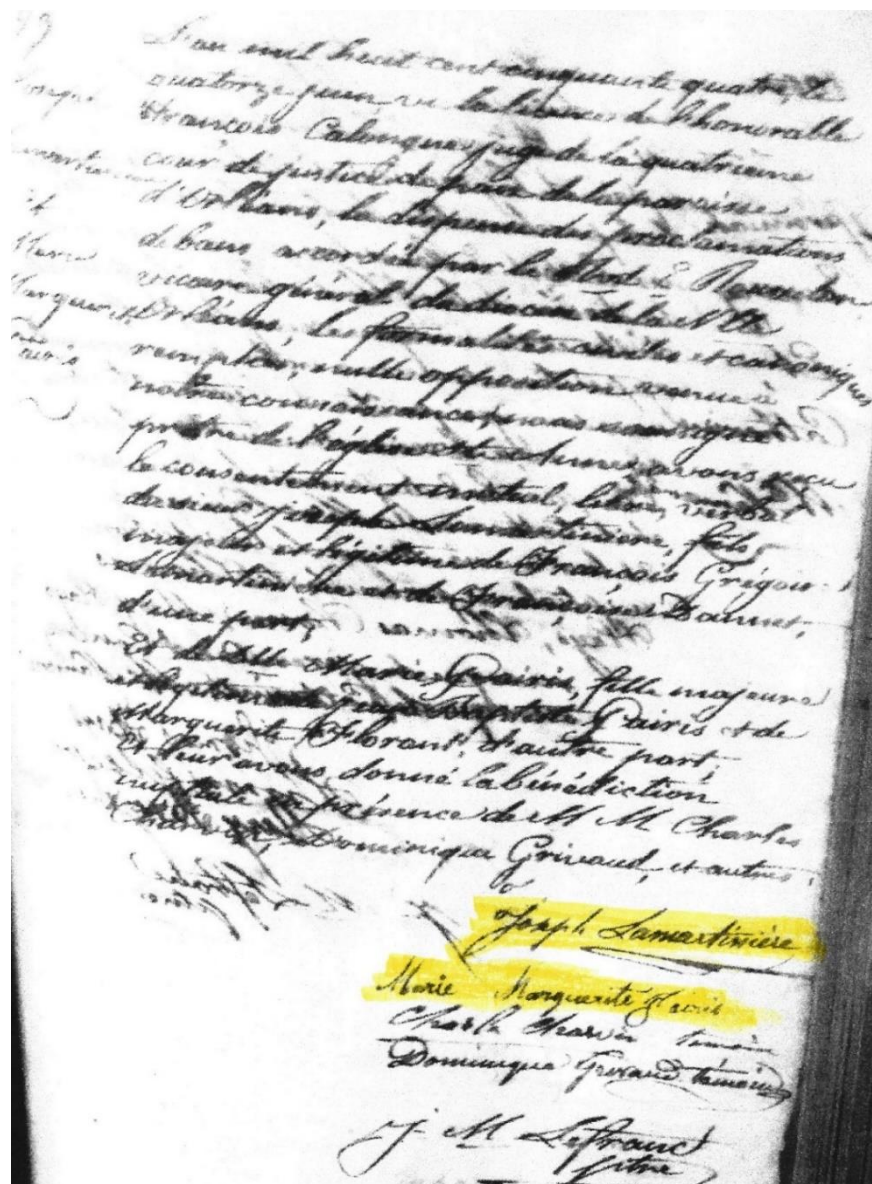 L'an mil huit cent cinquante quatre, le
quatorze juin vu la licence de l'honorable
François Calonque juge de la quatrième
cour de justice de paix de la paroisse
d'Orléans, la dispense des proclamations
de bans accordée par le E. Rousselon
vicaire général du diocèse de la Nlle
Orléans, les formalités civiles et canoniques
remplies, nulle opposition venue à
notre connaissance, nous soussigné
prêtre de l'église Ste Anne, avons reçu
le consentement mutuel,
du sieur Joseph Lamartiniere, fils
majeur et légitime de François Grégoire
Lamartiniere et de Françoise
d'une part,
Et de Dlle Marie Pairis, fille majeure
et légitime de Jean Baptiste Pairis et de
Marguerite Florant, d'autre part,
Et leur avons donné la bénédiction
nuptiale en présence de M M Charles
Charvin, Dominique Grivaud, et autres.
Joseph
Marie
Marguerite
Pairis
Joseph Lamartinière
Marie Marguerite Pairis
Charle Charvin temoin
Dominique Grivaud témoin
J. M. Lefranc
ptre